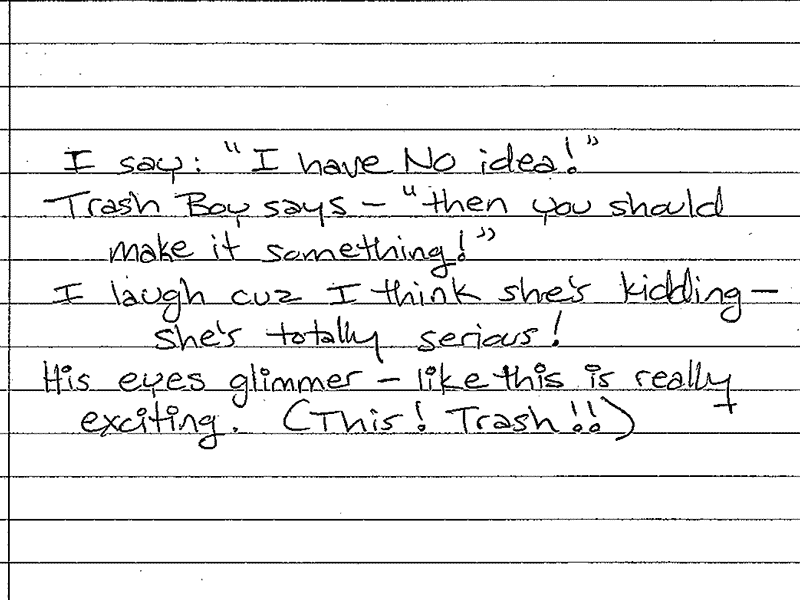 I say: "I have No idea!"
Trash Boy says – "then you should
make it something!"
I laugh cuz I think she's kidding –
she's totally serious!
His eyes glimmer – like this is really
exciting. (This! Trash!!)